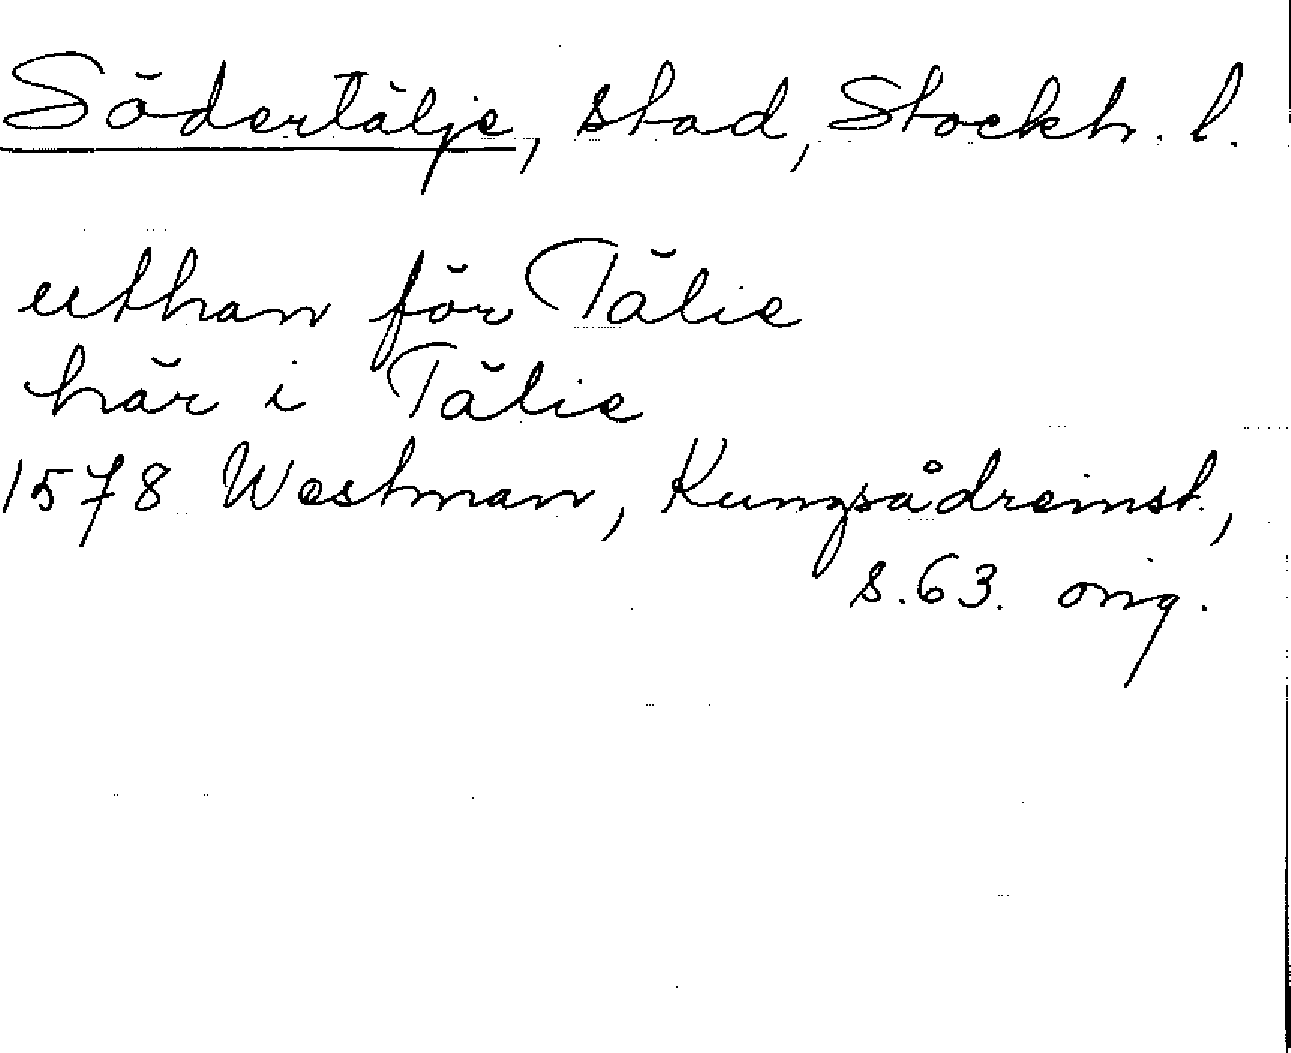 Södertälje, stad, Stockh. l.
uthan för Tälie
här i Tälie
1578 Westman, Kungsådreinst.,
s. 63. orig.